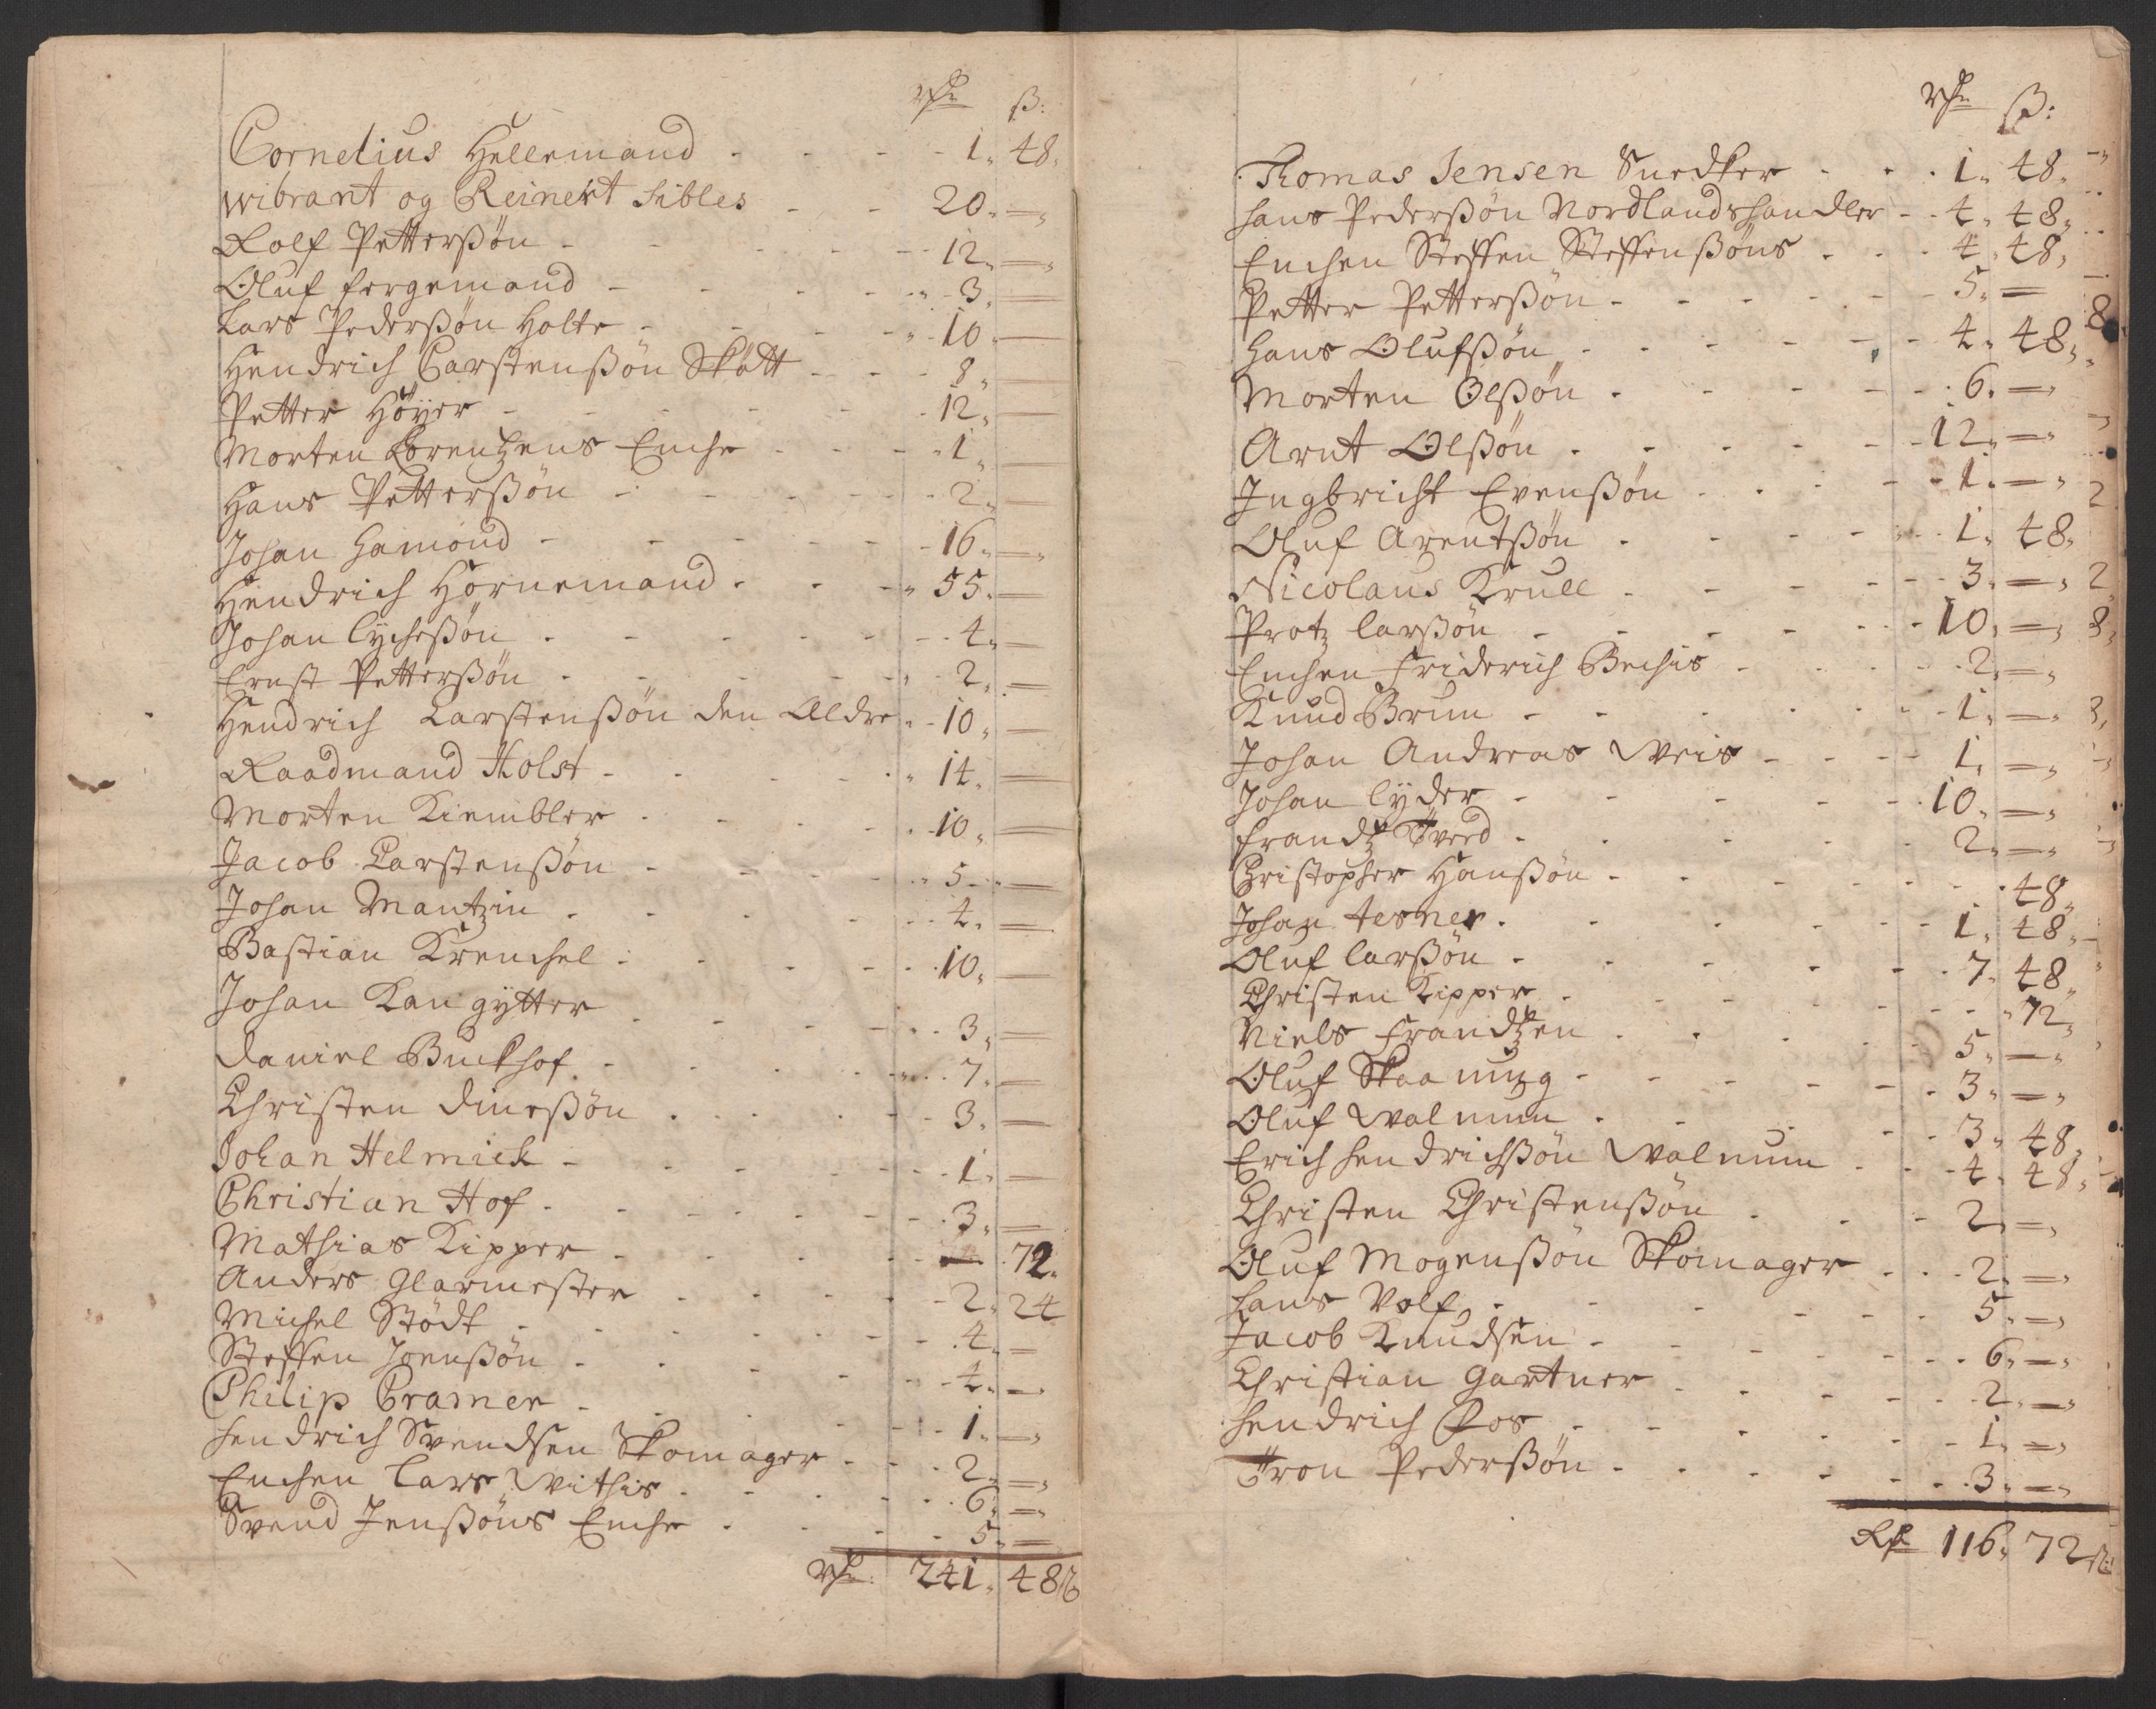 Rdr ß:
Cornelius Hellemand - - - 1. 48.
Wibrant og Reinert Sibles - - 20. —
Rolf Petterßøn - - - 12. —
Oluf fergemand - - - 3. —
Lars Pederßøn Holte - - - 10 —
Hendrich Carstenßøn Skøtt - - - 8. —
Petter Høyer - - - 12. —
Morten Lorentzens Enche - - - 1. —
Hans Petterßøn - - - 2. —
Johan Hamond - - - 16. —
Hendrich Hornemand - - - 55. —
Johan Lycheßøn - - - 4. —
Ernst Petterßøn - - - 2. —
Hendrich Carstenßøn den Ældre - - 10. —
Raadmand Holst - - - 14. —
Morten Kiembler - - - 10. —
Jacob Carstenßøn - - - 5. —
Johan Mantzin - - - 4. —
Bastian Krenchel - - - 10. —
Johan Kangytter - - - 3. —
Daniel Buckhof - - - 7. —
Christen Dineßøn - - - 3. —
Johan Helmich - - - 1. —
Christian Hof - - - 3. —
Mathias Kipper - - - — 72.
Anders Glarmester - - - 2. 24
Michel Stødt - - - 4. —
Steffen Joenßøn - - - 4. —
Philip Cramer - - - 1. —
Hendrich Svendsen Skomager - - - 2. —
Enchen Lars Withis - - - 6. —
Svend Jenßøns Enche - - - 5. —
Rdr. 241. 48 ß
Rdr ß:
Thomas Jensen Snedker - - - 1. 48.
Hans Pederßøn Nordlandshandler - - 4. 48.
Enchen Steffen Steffenßøns - - - 4. 48.
Petter Petterßøn - - - 5. —
Hans Olufßøn - - - 4. 48.
Morten Olßøn - - - 6. —
Arnt Olßøn - - - 12. —
Ingbricht Evenßøn - - - 1. —
Oluf Arentßøn - - - 1. 48.
Nicolaus Krull - - - 3. —
Protz Larßøn - - - 10. —
Enchen Friderich Bechis - - - 2. —
Knud Brun - - - 1. —
Johan Andreas Weis - - - 1. —
Johan Lyder - - - 10. —
Frandtz Tverd - - - 2. —
Christopher Hanßøn - - - 48.
Johan Tesner - - - 1. 48.
Oluf Larßøn - - - 7. 48.
Christen Kipper - - - 72.
Niels Frandtzen - - - 5. —
Oluf Skaaning - - - 3. —
Oluf Walnum - - - 3. 48.
Erich Hendrichßøn Walnum - - - 4. 48.
Christen Christenßøn - - - 2. —
Oluf Mogenßøn Skomager - - - 2. —
Hans Volf - - - 5. —
Jacob Knudsen - - - 6. —
Christian Gartner - - - 2. —
Hendrich Pos - - - 1. —
Tron Pederßøn - - - 3. —
Rdr 116. 72 ß